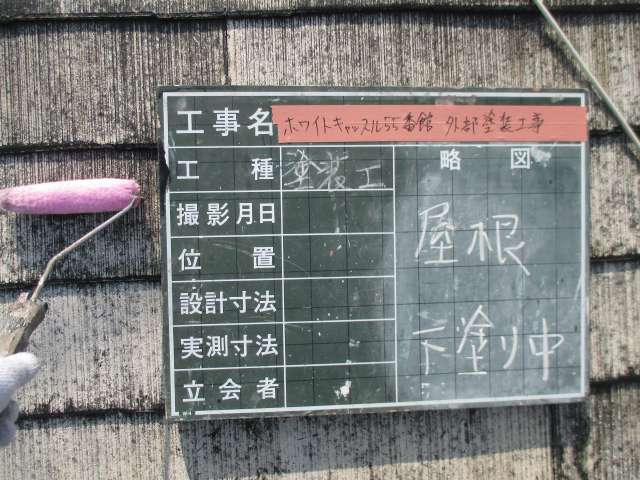 工事名 ホワイトキャッスル55番館 外部塗装工事
工種 塗装工
略図
撮影月日
位置
設計寸法
実測寸法
立会者
屋根
下塗り中